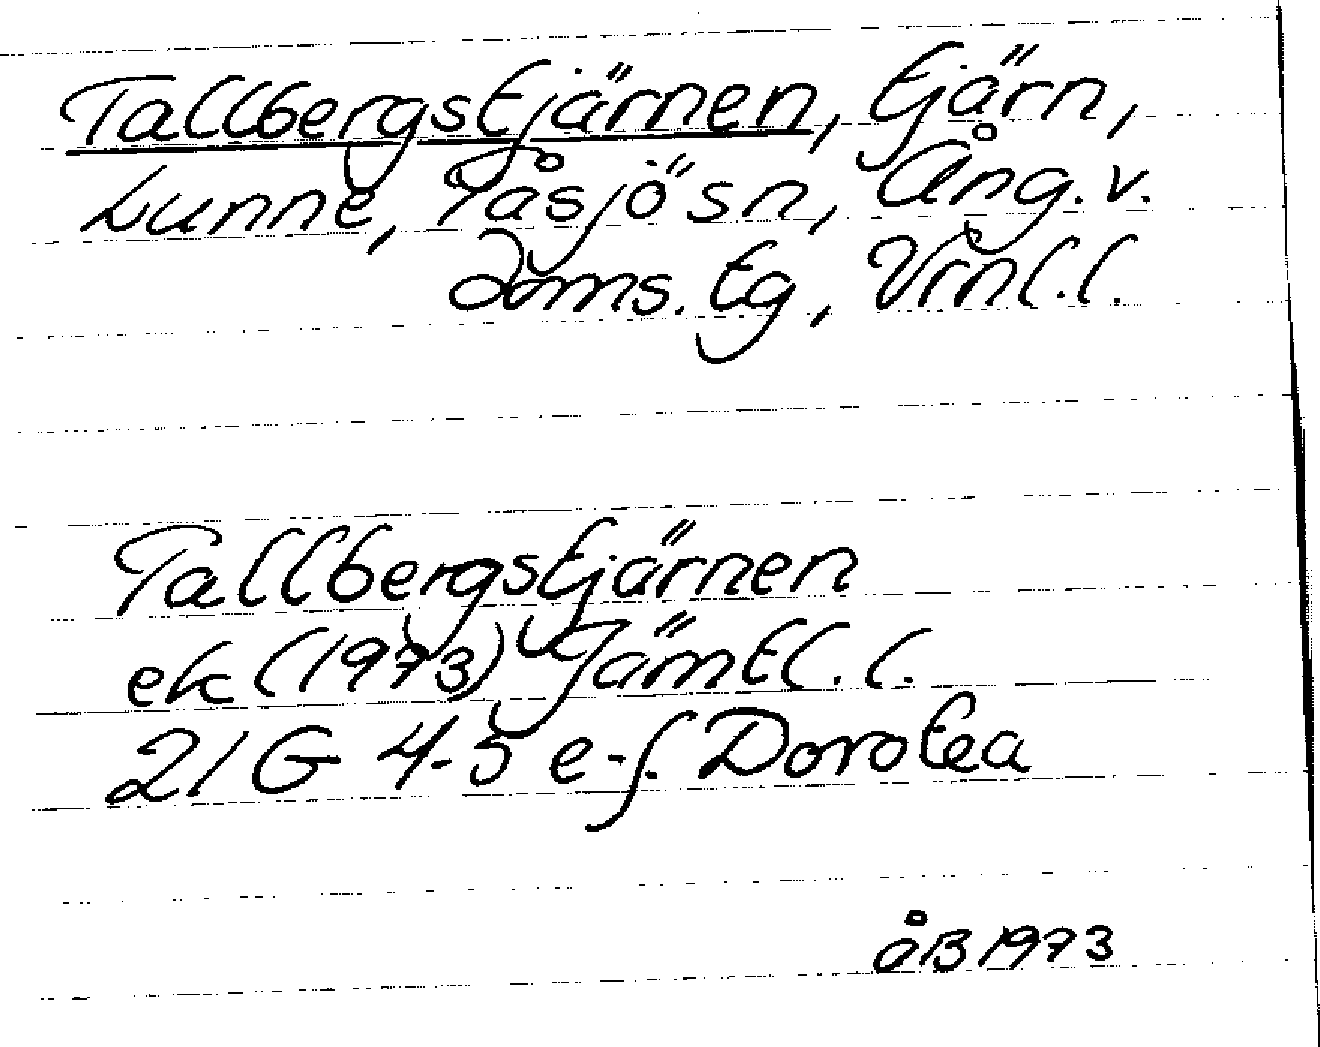 Tallbergstjärnen, tjärn,
Lunne, Tåsjö sn, Ång. v.
doms. tg, Vrnl. l.
Tallbergstjärnen
ek (1973) Jämtl. l.
21 G 4-5 e-f. Dorotea
åB 1973